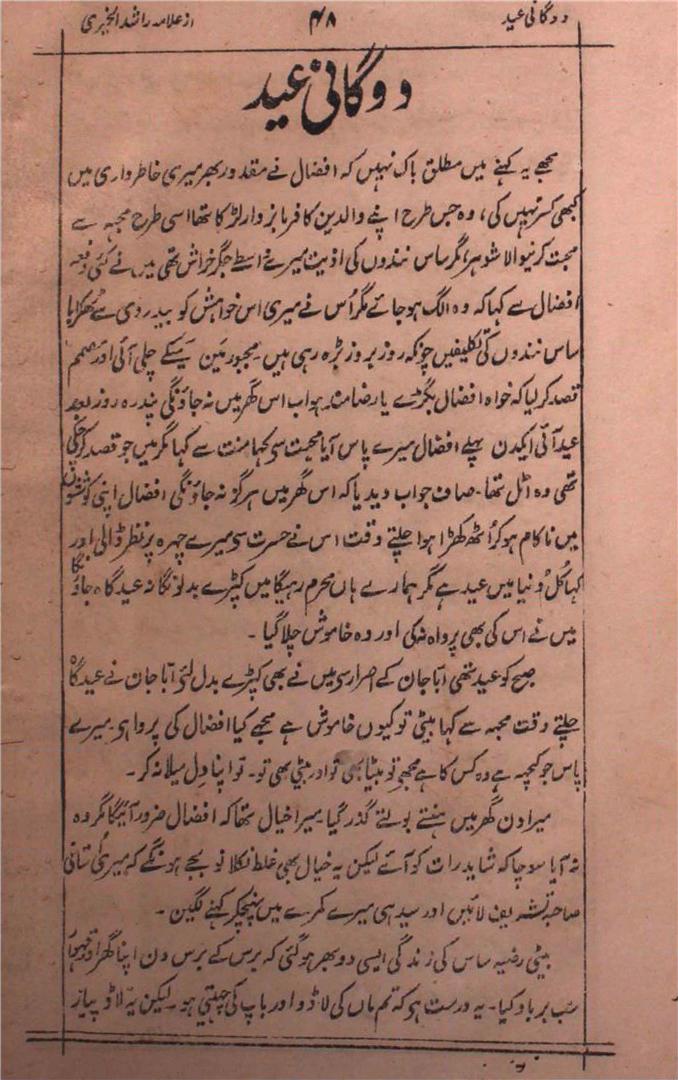 دوگانی عید
۴۸
از علامہ راشد الخیری
دوگانی عید
مجھے یہ کہنے میں مطلق باک نہیں کہ افضال نے مقدور بھر میری خاطرداری میں
کبھی کسر نہیں کی، وہ جس طرح اپنے والدین کا فرمانبردار لڑکا تھا اسی طرح مجہہ سے
محبت کرنیوالا شوہر، مگر ساس نندوں کی اذیت میرے واسطے جگر خراش تھی میں نے کئی دفعہ
افضال سے کہا کہ وہ الگ ہو جائے مگر اُس نے میری اس خواہش کو بیدردی سے ٹھکرایا
ساس نندوں کی تکلیفیں چونکہ روز بروز بڑہ رہی ہیں مجبور مین میکے چلی آئی اور مصمم
قصد کر لیا کہ خواہ افضال بگڑے یا رضامند ہو اب اس گھر میں نہ جاؤنگی پندرہ روز بعد
عید آئی ایکدن پہلے افضال میرے پاس آیا محبت سی کہا منت سے کہا مگر میں جو قصد کر چکی
تھی وہ اٹل تھا۔ صاف جواب دیدیا کہ اس گھر میں ہرگز نہ جاؤنگی افضال اپنی کوششوں
میں ناکام ہو کر اُٹھ کھڑا ہوا چلتے وقت اس نے حسرت سی میرے چہرہ پر نظر ڈالی اور
کہا کُل دنیا میں عید ہے مگر ہمارے ہاں محرم رہیگا میں کپڑے بدلونگا نہ عیدگاہ جاؤنگا
میں نے اس کی بھی پرواہ نہ کی اور وہ خاموش چلا گیا ۔
صبح کو عید تھی ابا جان کے اصرار سی میں نے بھی کپڑے بدل لئی ابا جان نے عیدگاہ
چلتے وقت مجہہ سے کہا بیٹی تو کیوں خاموش ہے مجہے کیا افضال کی پروا ہی۔ میرے
پاس جو کچہہ ہے وہ کس کا ہے مجھے تو بیٹا بھی تو اور بیٹی بھی تو۔ تو اپنا دِل میلا نہ کر۔
میرا دن گھر میں ہنستے بولتے گذر گیا میرا خیال تھا کہ افضال ضرور آئیگا مگر وہ
نہ آیا سوچا کہ شاید رات کو آئے لیکن یہ خیال بھی غلط نکلا نو بجے ہونگے کہ میری اُستانی
صاحبہ تشریف لائیں اور سیدہی میرے کمرے میں پہنچکر کہنے لگین ۔
بیٹی رضیہ ساس کی زندگی ایسی دوبھر ہو گئی کہ برس کے برس دن اپنا گھر اور تیوہار
سب برباد کیا۔ یہ درست ہی کہ تم ماں کی لاڈو اور باپ کی چہیتی ہو۔ لیکن یہ لاڈ و پیار